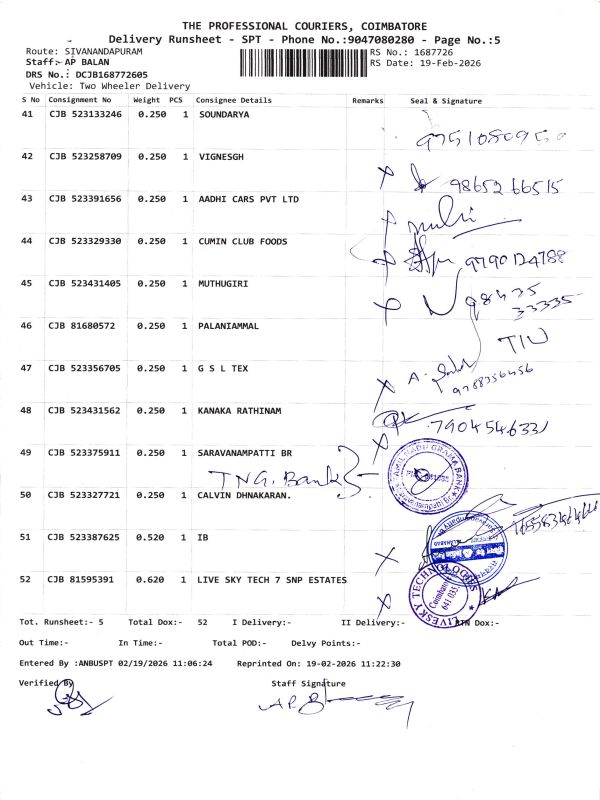 THE PROFESSIONAL COURIERS, COIMBATORE
Delivery Runsheet - SPT - Phone No.:9047080280 - Page No.:5
Route: SIVANANDAPURAM RS No.: 1687726
Staff:- AP BALAN RS Date: 19-Feb-2026
DRS No.: DCJB168772605
Vehicle: Two Wheeler Delivery
S No Consignment No Weight PCS Consignee Details Remarks Seal & Signature
41 CJB 523133246 0.250 1 SOUNDARYA
42 CJB 523258709 0.250 1 VIGNESGH
9865266515
43 CJB 523391656 0.250 1 AADHI CARS PVT LTD
44 CJB 523329330 0.250 1 CUMIN CLUB FOODS
9790124788
45 CJB 523431405 0.250 1 MUTHUGIRI
98435
33335
46 CJB 81680572 0.250 1 PALANIAMMAL
47 CJB 523356705 0.250 1 G S L TEX
9788356456
48 CJB 523431562 0.250 1 KANAKA RATHINAM
7904546331
49 CJB 523375911 0.250 1 SARAVANAMPATTI BR
TNG. Bank
TAMIL NADU GRAMA BANK
50 CJB 523327721 0.250 1 CALVIN DHNAKARAN.
51 CJB 523387625 0.520 1 IB
52 CJB 81595391 0.620 1 LIVE SKY TECH 7 SNP ESTATES
LIVESKY TECHNOLOGIES
Coimbatore
641 035
Tot. Runsheet:- 5 Total Dox:- 52 I Delivery:- II Delivery:- Dox:-
Out Time:- In Time:- Total POD:- Delvy Points:-
Entered By :ANBUSPT 02/19/2026 11:06:24 Reprinted On: 19-02-2026 11:22:30
Verified By Staff Signature